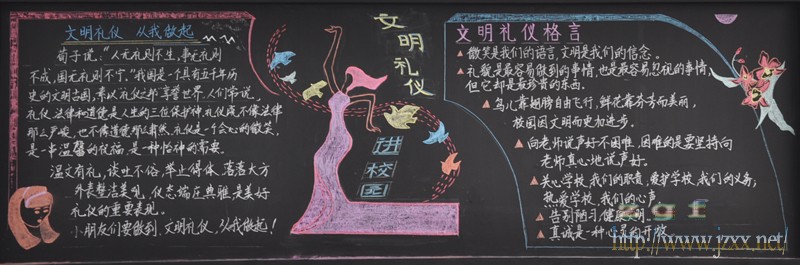 文明礼仪 从我做起
荀子说:“人无礼则不生,事无礼则
不成,国无礼则不宁。”我国是一个具有五千年历
史的文明古国,素以礼仪之邦享誉世界,人们常说,
礼仪、法律和道德是人生的三位保护神,礼仪或不像法律
那么严峻,也不像道德那么肃然,礼仪是一个会心的微笑,
是一串温馨的祝福,是一种怡神的需要。
温文有礼,谈吐不俗,举止得体,落落大方
外表整洁美观,仪态端庄典雅是美好
礼仪的重要表现。
小朋友们要做到,文明礼仪,从我做起!
文明礼仪
进校园
文明礼仪格言
微笑是我们的语言,文明是我们的信念。
礼貌是最容易做到的事情,也是最容易忽视的事情,
但它却是最珍贵的东西。
鸟儿靠翅膀自由飞行,鲜花靠芬芳而美丽,
校园因文明而更加进步。
向老师说声好不困难,困难的是要坚持向
老师真心地说声好。
关心学校,我们的职责,爱护学校,我们的义务,
热爱学校,我们的心声
告别陋习,健康文明。
真诚是一种心灵的开放
http://www.jzxx.net/